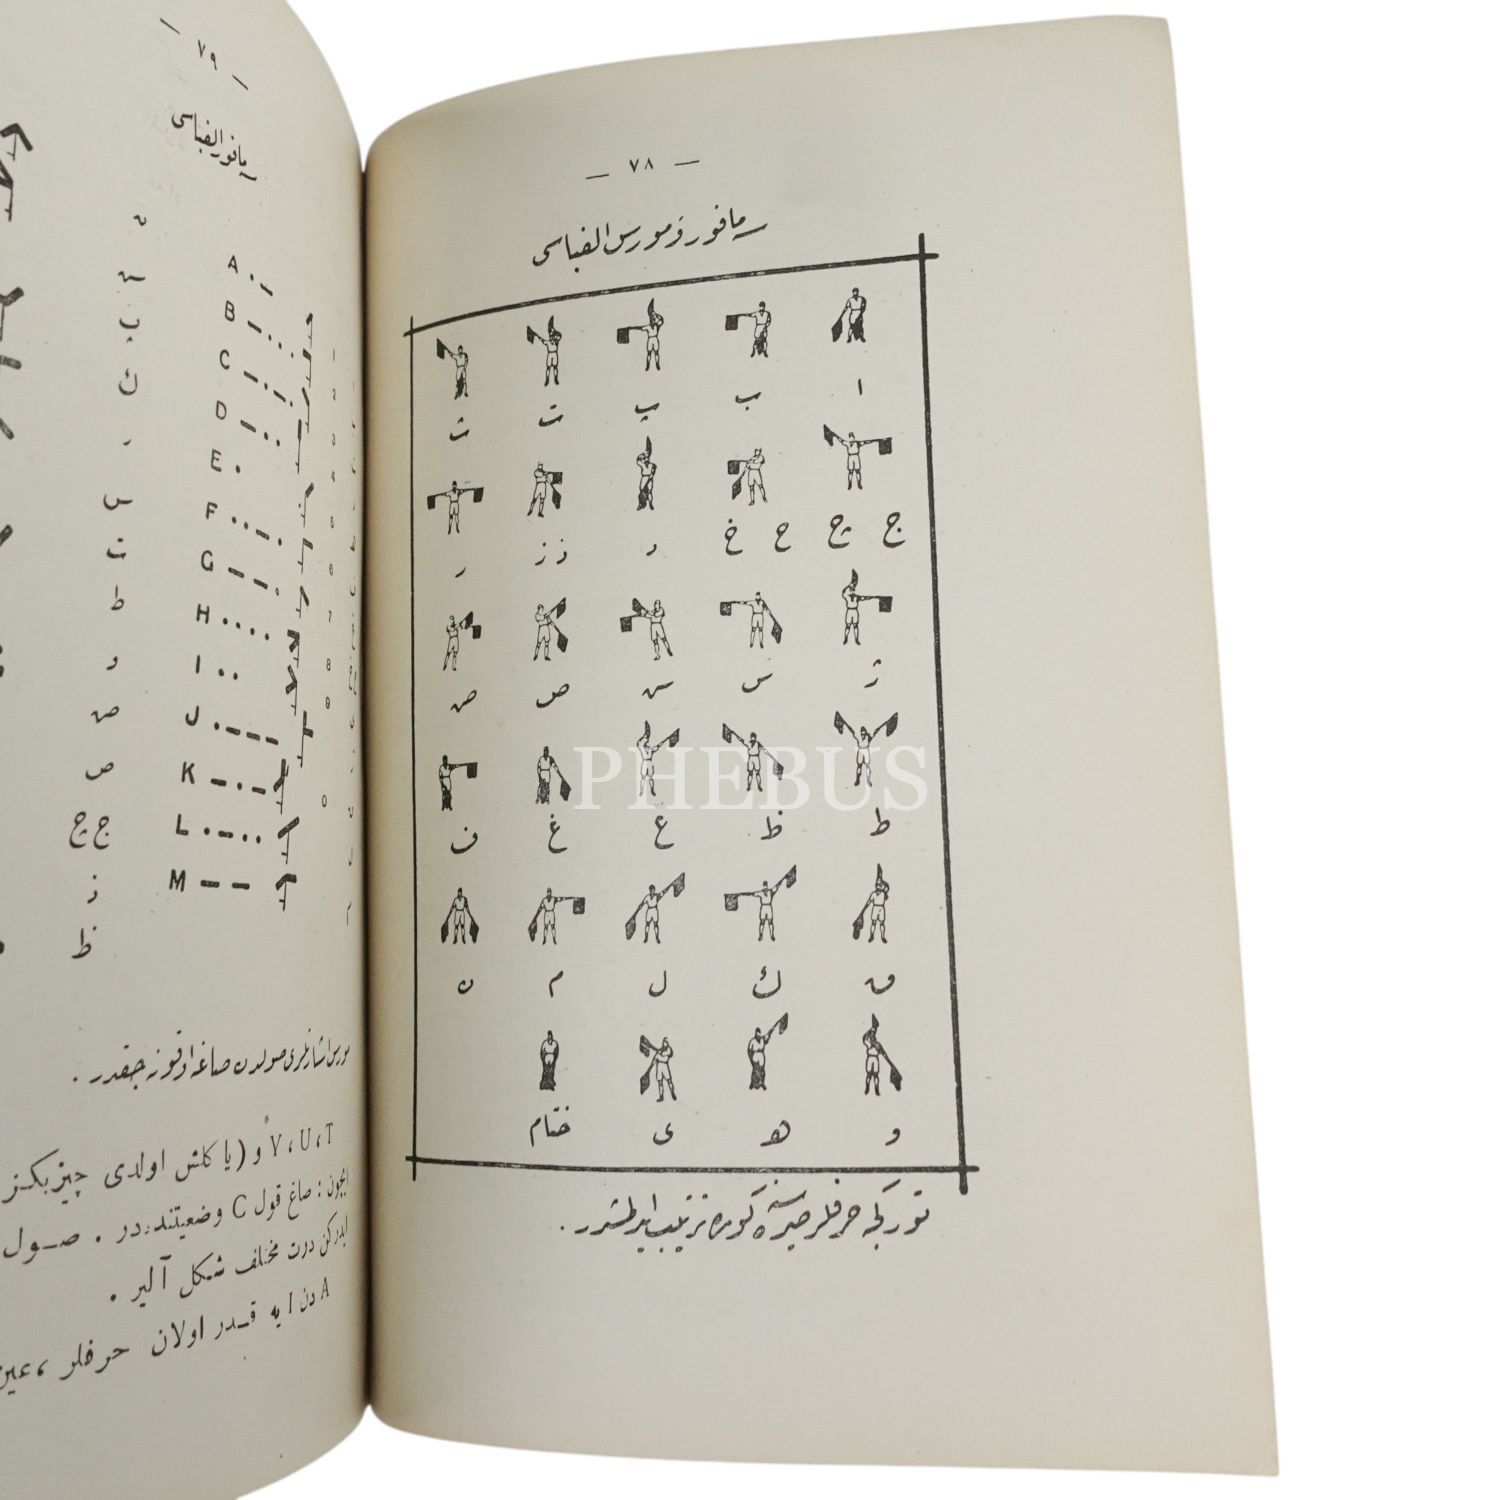 — ٧٨ —
سمافور و مورس الفباسی
ا ب پ ت ث
ج چ ح خ د ذ ز ر
ژ س ش ص ض
ط ظ ع غ ف
ق ك ل م ن
و هـ ی ختام
توركجه حرفلر صره‌سنه كوره ترتیب ایدلمشدر .
PHEBUS
— ٧٩ —
سمافور الفباسی
A · –
B – · · ·
C – · – ·
D – · ·
E ·
F · · – ·
G – – ·
H · · · ·
I · ·
J · – – –
K – · –
L · – · ·
M – –
ن
ش
پ
ك
س
ت
ط
و
ض
ص
ج چ
ز
ظ
مورس اشارتلری صولدن صاغه اوقونه‌جقدر .
T ، U ، V و (یا
اولدی
ایچون : صاغ قول C وضعیتنده‌در . صول
ایدركن درت مختلف شكل آلیر .
A دن I یه قدر اولان حرفلر ،